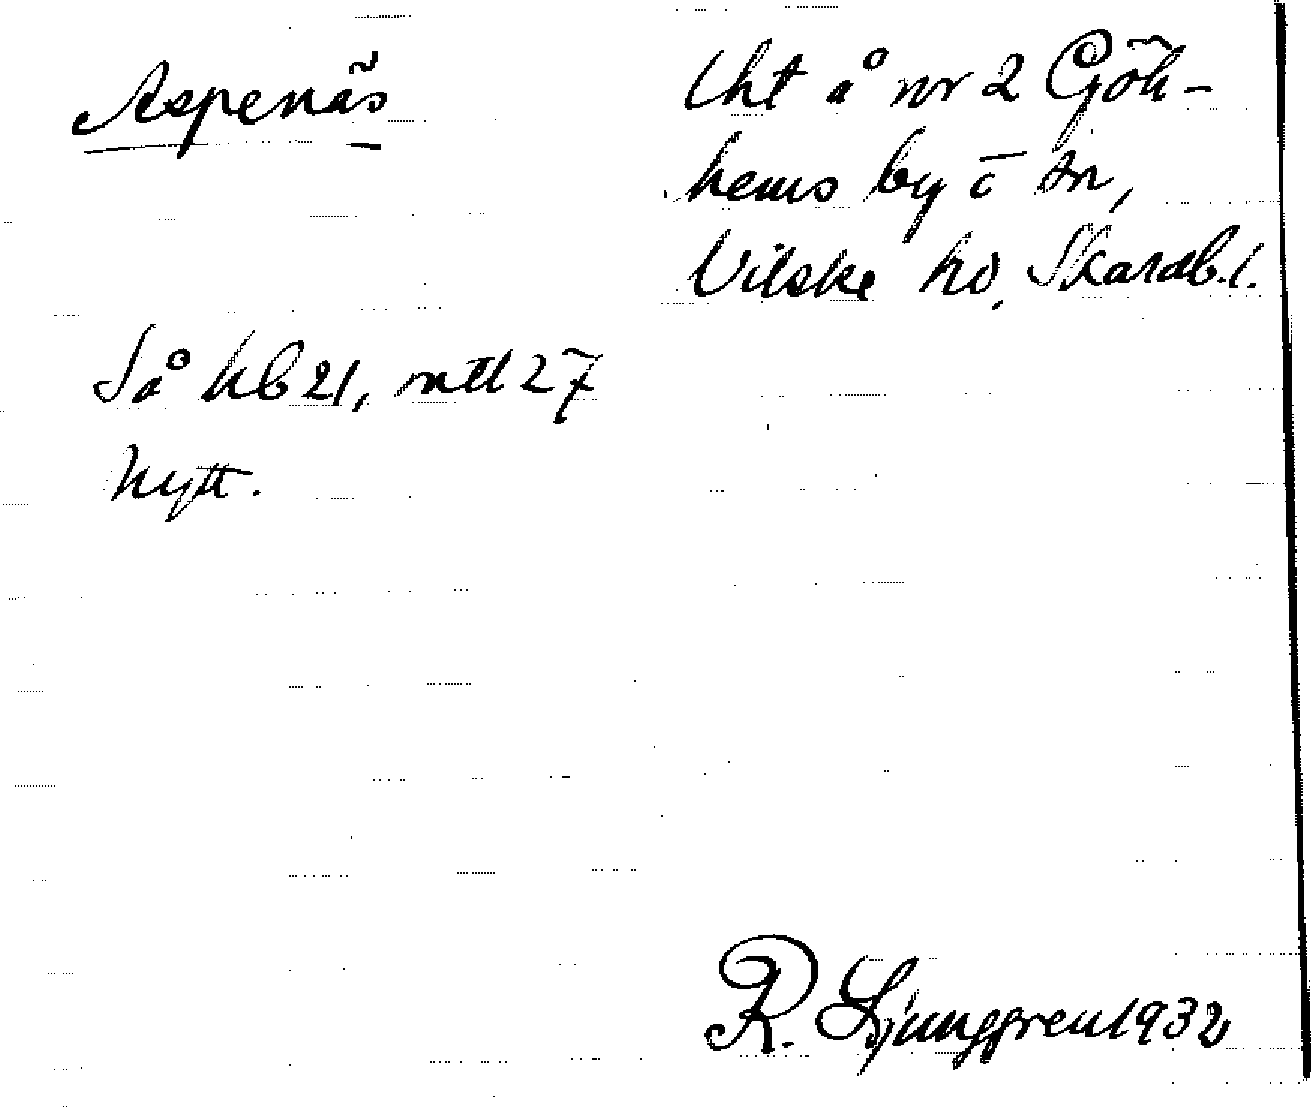 Aspenäs
Lht å nr 2 Gök-
hems by o sn,
Vilske hd, Skarab.l.
Så kb 21, mtl 27
Nytt.
R. Ljunggren 1932